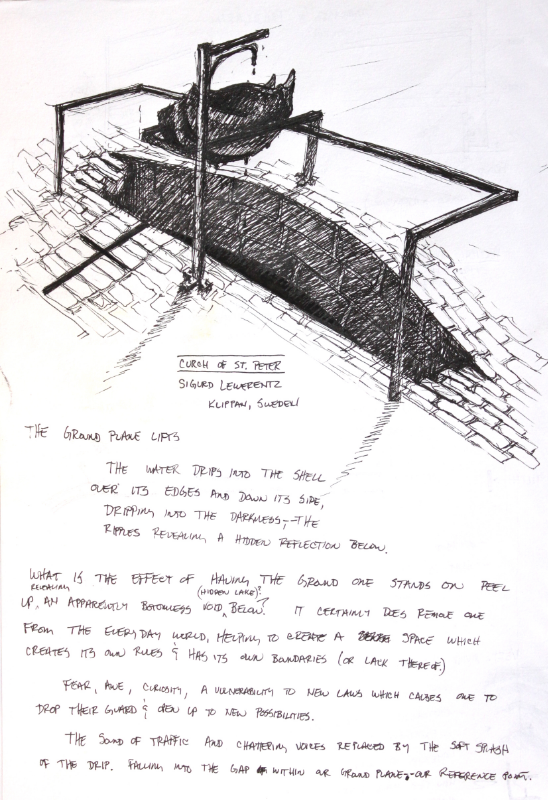 CURCH OF ST. PETER
SIGURD LEWERENTZ
KLIPPAN, SWEDEN
THE GROUND PLANE LIFTS
THE WATER DRIPS INTO THE SHELL
OVER ITS EDGES AND DOWN ITS SIDE,
DRIPPING INTO THE DARKNESS,—THE
RIPPLES REVEALING A HIDDEN REFLECTION BELOW.
WHAT IS THE EFFECT OF HAVING THE GROUND ONE STANDS ON PEEL
REVEALING (HIDDEN LAKE)?
UP, AN APPARENTLY BOTOMLESS VOID BELOW? IT CERTAINLY DOES REMOVE ONE
FROM THE EVERYDAY WORLD, HELPING TO CREATE A SPACE WHICH
CREATES ITS OWN RULES & HAS ITS OWN BOUNDARIES (OR LACK THEREOF.)
FEAR, AWE, CURIOSITY, A VULNERABILITY TO NEW LAWS WHICH CAUSES ONE TO
DROP THEIR GUARD & OPEN UP TO NEW POSSIBILITIES.
THE SOUND OF TRAFFIC AND CHATTERING VOICES REPLACED BY THE SOFT SPLASH
OF THE DRIP. FALLING INTO THE GAP WITHIN OUR GROUND PLANE, OUR REFERENCE POINT.